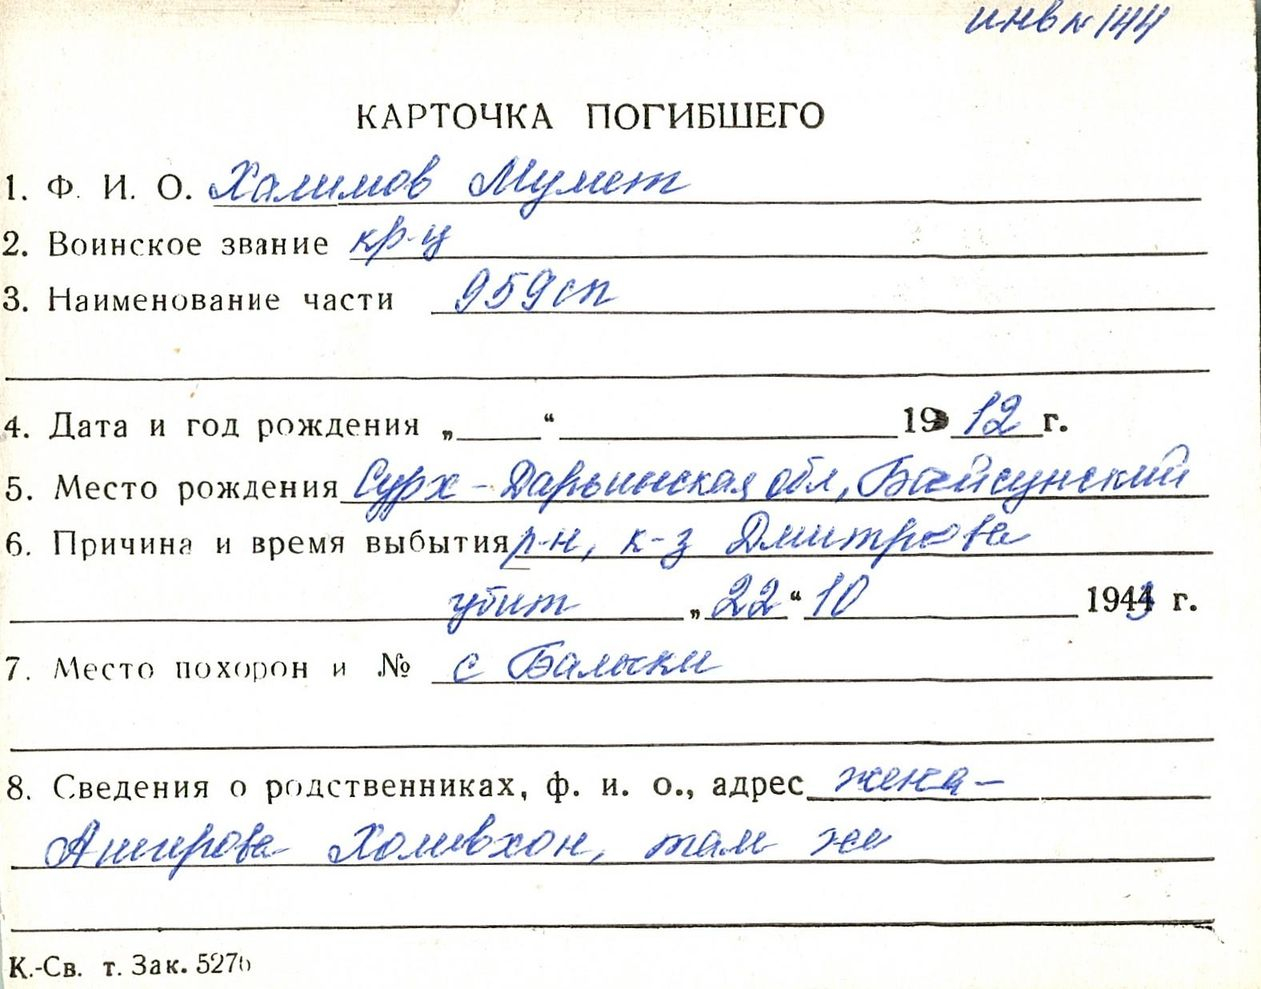 инв № 144
КАРТОЧКА ПОГИБШЕГО
1. Ф. И. О. Халимов Мумет
2. Воинское звание кр-ц
3. Наименование части 959 сп
4. Дата и год рождения „ “ 1912 г.
5. Место рождения Сурх-Дарьинская обл, Байсунский
6. Причина и время выбытия р-н, к-з Дмитрова
убит „22“ 10 1943 г.
7. Место похорон и № с Балыки
8. Сведения о родственниках, ф. и. о., адрес жена-
Аширова Холивхон, там же
К.-Св. т. Зак. 5276